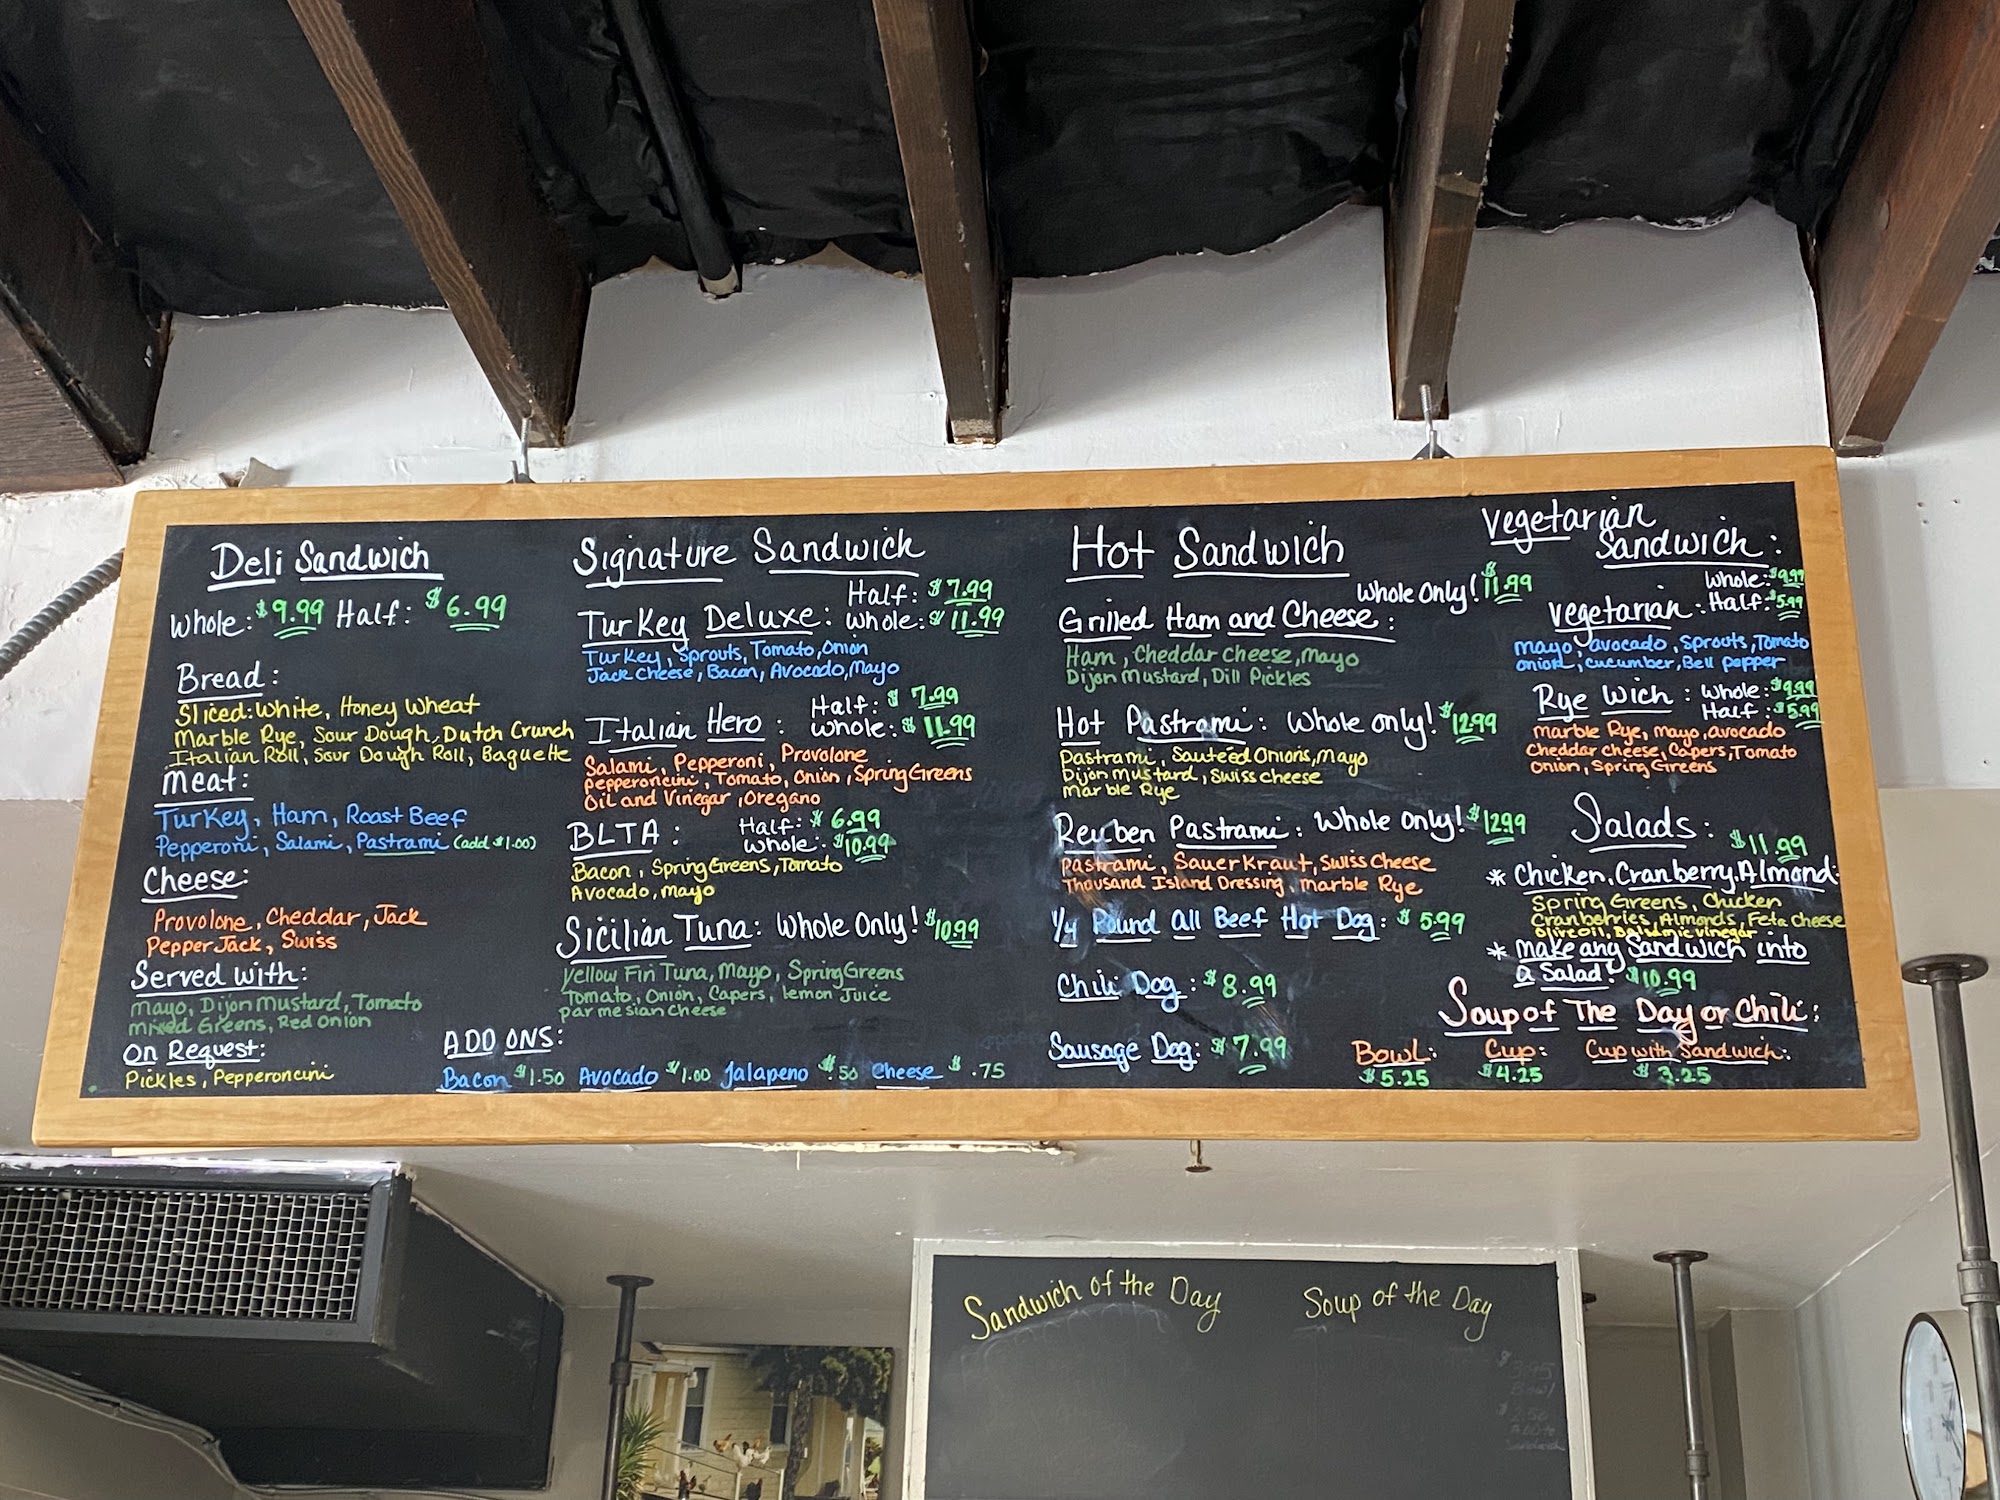 Deli Sandwich
Whole: $9.99 Half: $6.99
Bread:
Sliced: White, Honey Wheat
Marble Rye, Sour Dough, Dutch Crunch
Italian Roll, Sour Dough Roll, Baguette
Meat:
Turkey, Ham, Roast Beef
Pepperoni, Salami, Pastrami (add $1.00)
Cheese:
Provolone, Cheddar, Jack
Pepper Jack, Swiss
Served with:
Mayo, Dijon Mustard, Tomato
Mixed Greens, Red Onion
On Request:
Pickles, Pepperoncini
ADD ONS:
Bacon $1.50 Avocado $1.00 Jalapeno $.50 Cheese $.75
Signature Sandwich
Half: $7.99
Turkey Deluxe: Whole: $11.99
Turkey, Sprouts, Tomato, Onion
Jack Cheese, Bacon, Avocado, Mayo
Half: $7.99
Italian Hero: Whole: $11.99
Salami, Pepperoni, Provolone
Pepperoncini, Tomato, Onion, Spring Greens
Oil and Vinegar, Oregano
Half: $6.99
BLTA: Whole: $10.99
Bacon, Spring Greens, Tomato
Avocado, Mayo
Sicilian Tuna: Whole Only! $10.99
Yellow Fin Tuna, Mayo, Spring Greens
Tomato, Onion, Capers, Lemon Juice
Parmesian Cheese
Hot Sandwich
Whole Only! $11.99
Grilled Ham and Cheese:
Ham, Cheddar Cheese, Mayo
Dijon Mustard, Dill Pickles
Hot Pastrami: Whole only! $12.99
Pastrami, Sauteed Onions, Mayo
Dijon Mustard, Swiss Cheese
Marble Rye
Reuben Pastrami: Whole Only! $12.99
Pastrami, SauerKraut, Swiss Cheese
Thousand Island Dressing, Marble Rye
1/4 Pound All Beef Hot Dog: $5.99
Chili Dog: $8.99
Sausage Dog: $7.99
Vegetarian
Sandwich:
Whole: $9.99
Vegetarian: Half: $5.99
Mayo, Avocado, Sprouts, Tomato
Onion, Cucumber, Bell Pepper
Rye Wich: Whole: $9.99
Half: $5.99
Marble Rye, Mayo, Avocado
Cheddar Cheese, Capers, Tomato
Onion, Spring Greens
Salads: $11.99
* Chicken, Cranberry, Almond:
Spring Greens, Chicken
Cranberries, Almonds, Feta Cheese
Olive Oil, Balsamic Vinegar
* Make any Sandwich into
a Salad! $10.99
Soup of The Day or Chili:
Bowl: Cup: Cup with Sandwich:
$5.25 $4.25 $3.25
Sandwich of the Day
Soup of the Day
$3.95
Bowl
$2.50
Add to
Sandwich